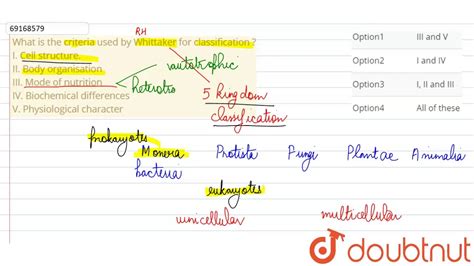 69168579
RH
What is the criteria used by Whittaker for classification ?
I. Cell structure.
II. Body organisation
III. Mode of nutrition
IV. Biochemical differences
V. Physiological character
autotrophic
heterotro
5 Kingdom
classification
Option1 III and V
Option2 I and IV
Option3 I, II and III
Option4 All of these
prokaryotes
Monera Protista Fungi Plantae Animalia
bacteria
eukaryotes
unicellular multicellular
doubtnut